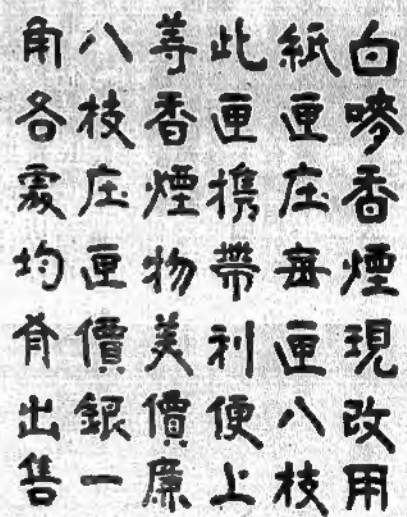 白嘜香煙現改用
紙匣庄每匣八枝
此匣携帶利便上
等香煙物美價廉
八枝庄匣價銀一
角各處均有出售